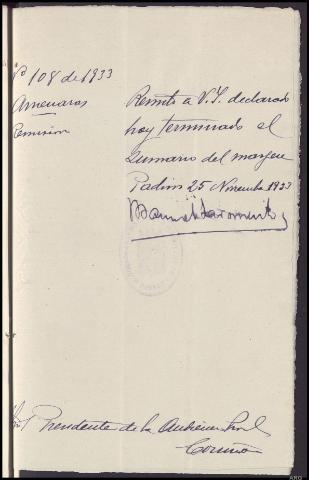 Nº 108 de 1933
Amenazas
Remision
Remito a V.S. declarado
hoy terminado el
Sumario del margen
Padron 25 Noviembre 1933
Presidente de la Audiencia Provl
Coruña